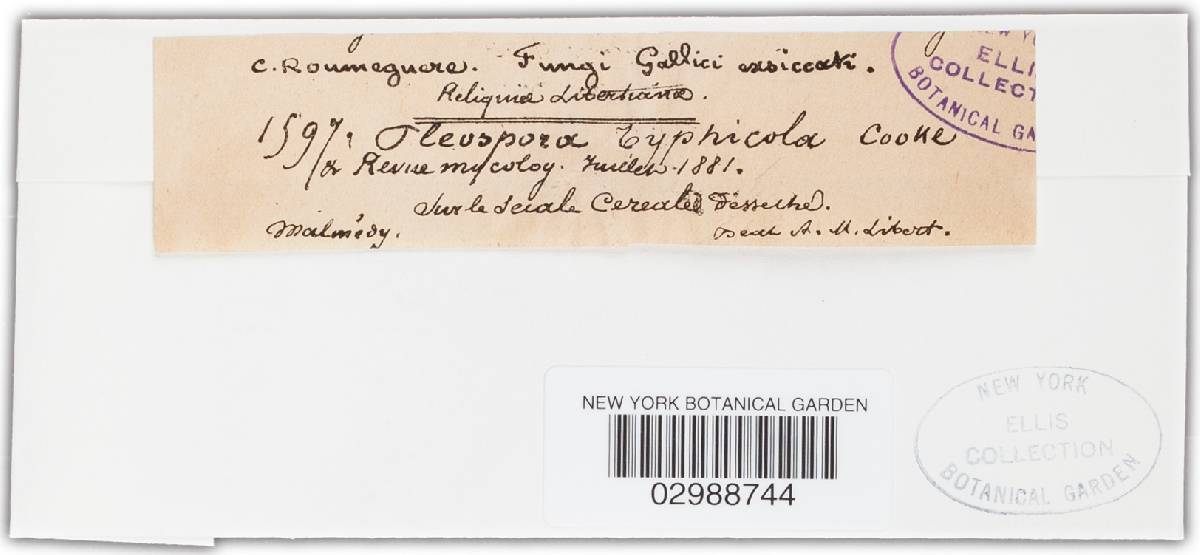 C. Roumeguere. Fungi Gallici exsiccati.
Reliquiæ Libertianæ.
1597. Pleospora Typhicola Cooke
Revue mycolog. Juillet 1881.
Sur le Secale Cereale Desseché.
Malmédy.
A. M. Libert.
NEW YORK
ELLIS
COLLECTION
BOTANICAL GARDEN
NEW YORK BOTANICAL GARDEN
02988744
NEW YORK
ELLIS
COLLECTION
BOTANICAL GARDEN